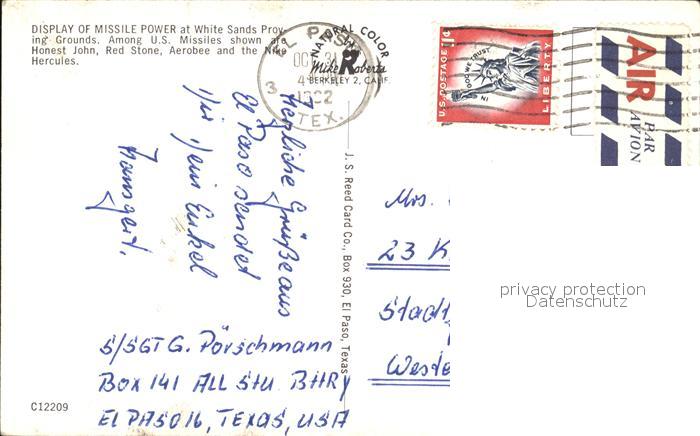 DISPLAY OF MISSILE POWER at White Sands Prov-
ing Grounds. Among U.S. Missiles shown are
Honest John, Red Stone, Aerobee and the Nike
Hercules.
NATURAL COLOR
Mike Roberts
BERKELEY 2, CALIF.
EL PASO
OCT 21
1962
TEX.
U.S. POSTAGE 11¢
IN GOD WE TRUST
LIBERTY
AIR
PAR
AVION
Herzliche Grüße aus
El Paso sendet
Dir Dein Enkel
Hansgert.
J. S. Reed Card Co., Box 930, El Paso, Texas
Mrs.
23 K
Stadt
Weste
privacy protection
Datenschutz
S/SGT G. Pörschmann
Box 141 All Stu. BTRY
El PASO 16, TEXAS, USA
C12209